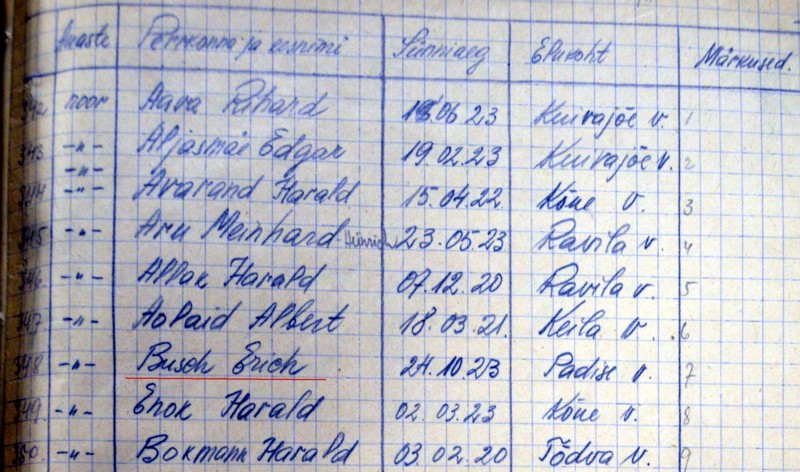 Auaste Perekonna ja eesnimi Sünniaeg Elukoht Märkused.
342 noor Aava Rihard 18 06 23 Kuivajõe v. 1
343 -"- Aljasmäe Edgar 19.02.23 Kuivajõe v. 2
344 -"- Avarand Harald 15.04.22 Kõue v. 3
345 -"- Aru Meinhard-Heinrich 23.05.23 Ravila v. 4
346 -"- Allak Harald 07.12.20 Ravila v. 5
347 -"- Aolaid Albert 18.03.21. Keila v. 6
348 -"- Busch Erich 24.10.23 Padise v. 7
349. -"- Enok Harald 02.03.23 Kõue v. 8
350. -"- Bokmann Harald 03 02.20 Tõdva v. 9